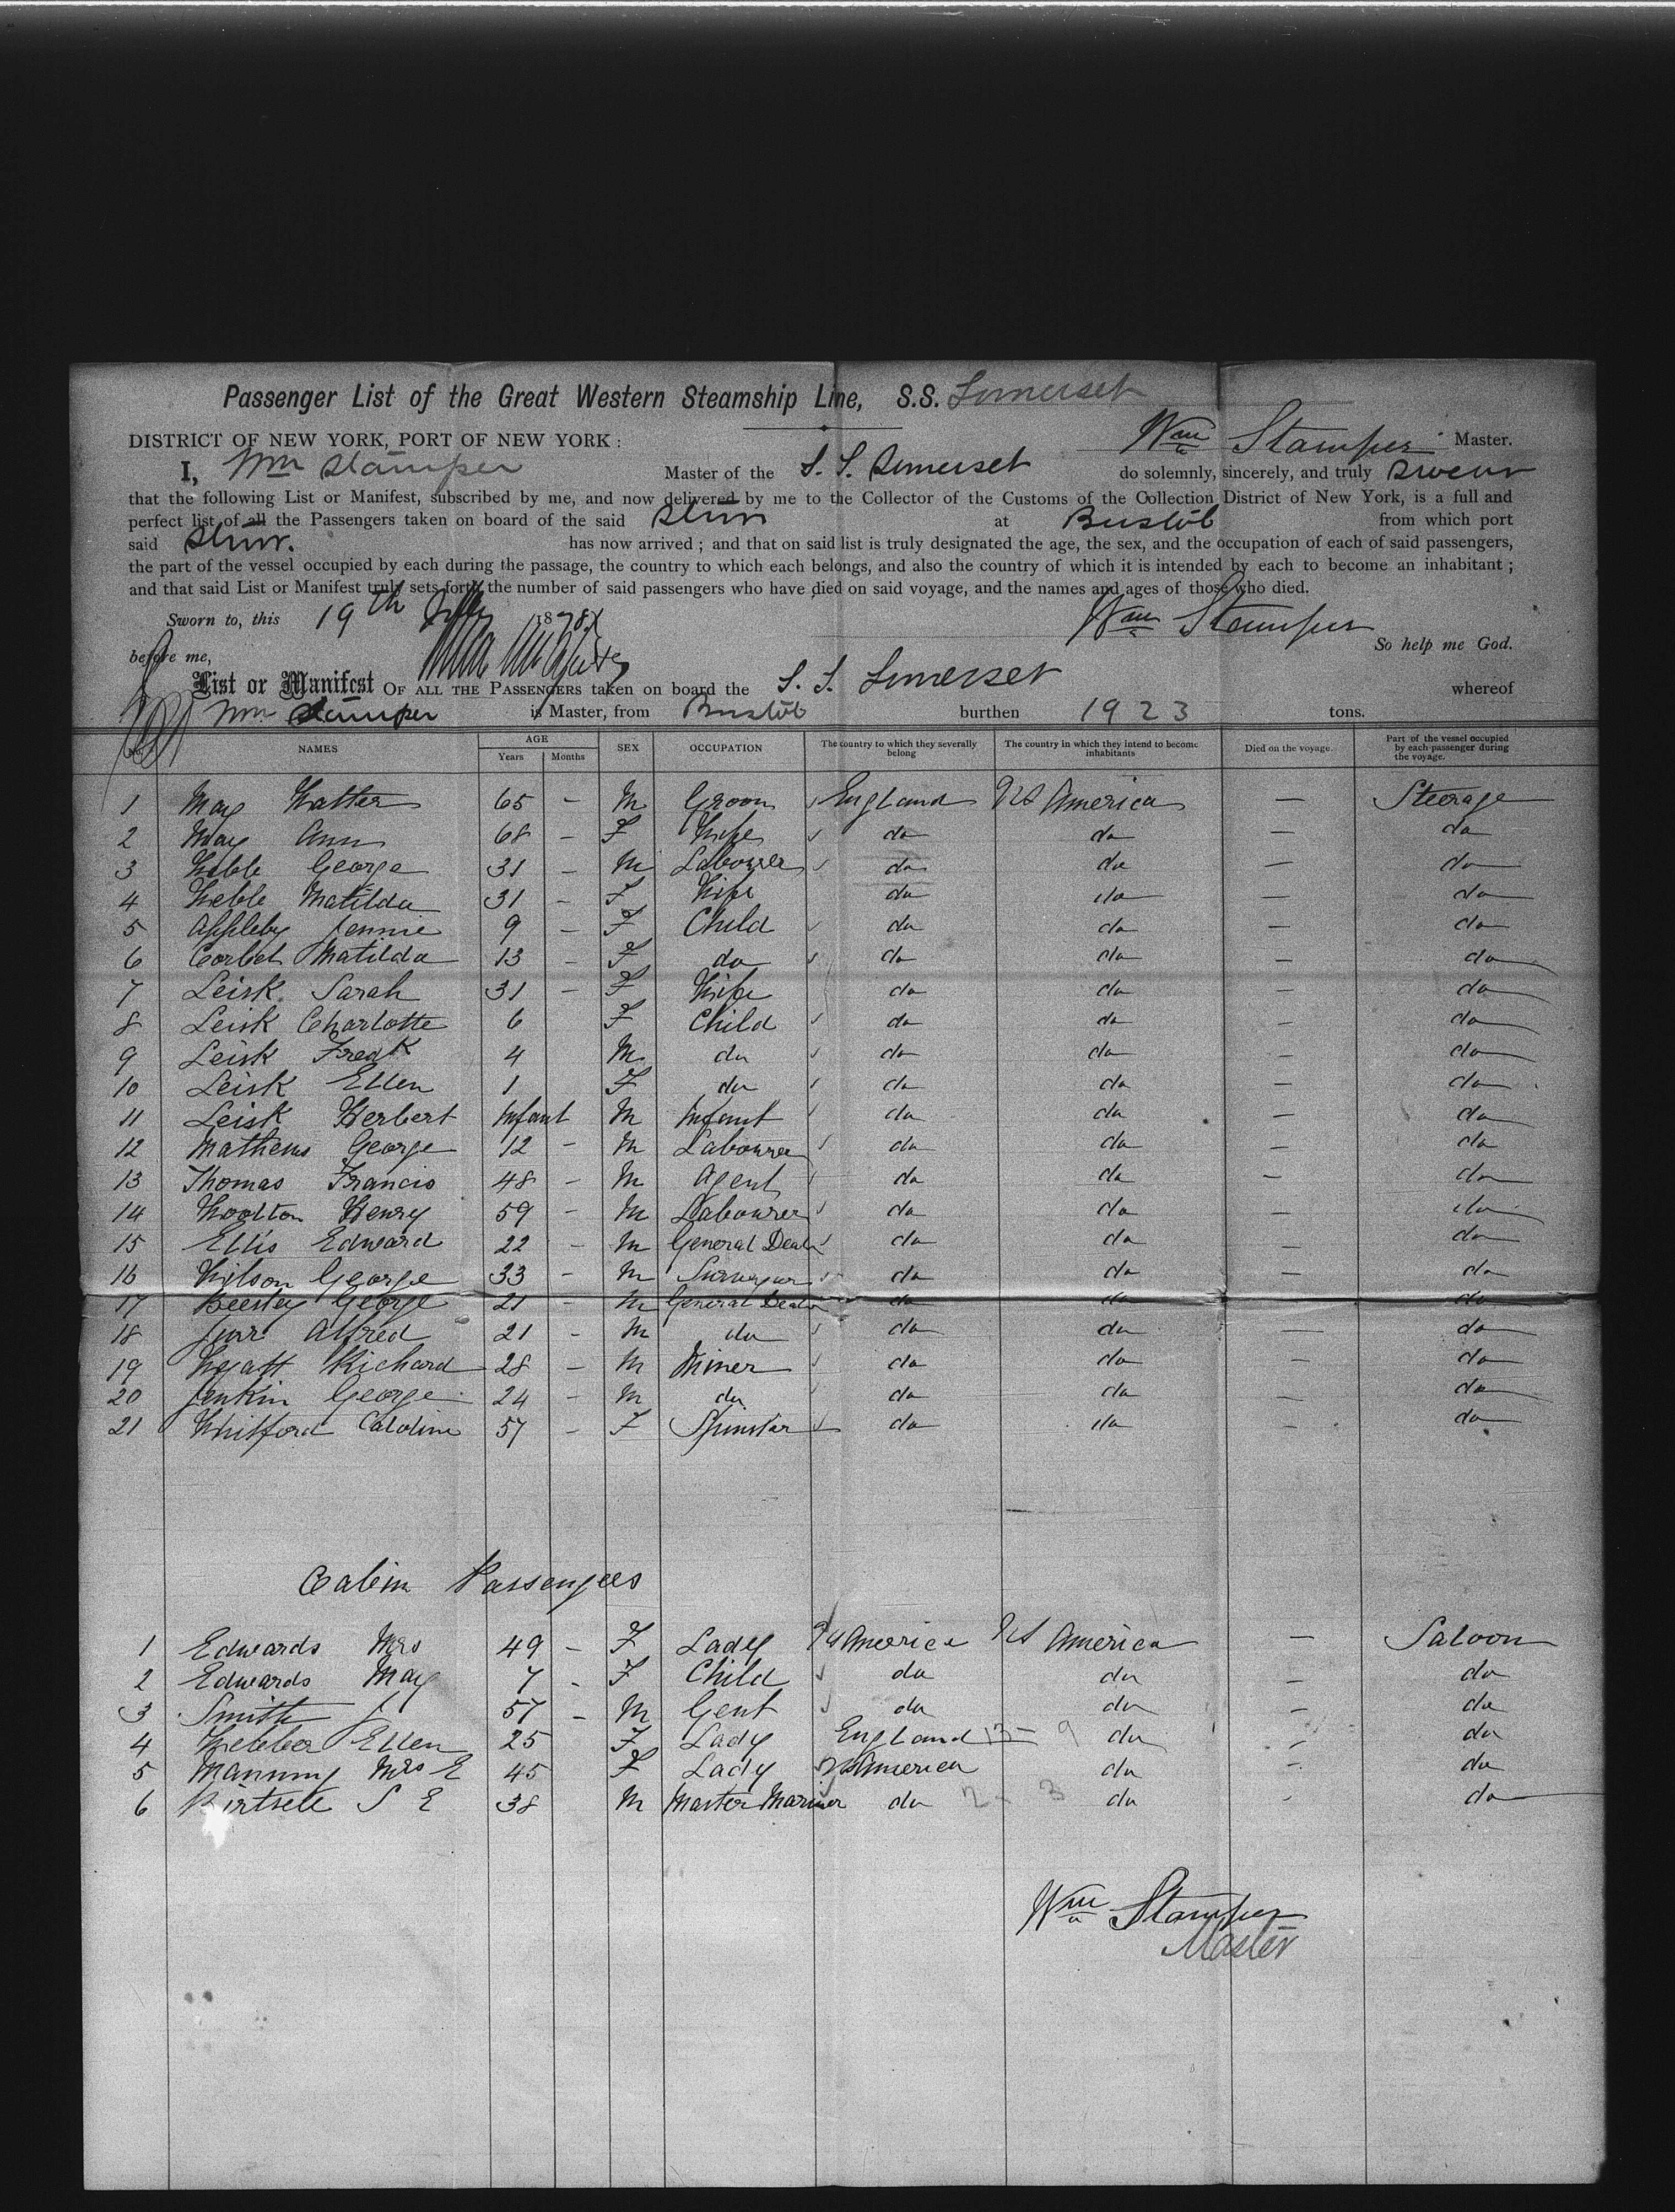 Passenger List of the Great Western Steamship Line, S.S. Somerset
DISTRICT OF NEW YORK, PORT OF NEW YORK : Wm Stamper Master.
I, Wm Stamper Master of the S. S. Somerset do solemnly, sincerely, and truly swear
that the following List or Manifest, subscribed by me, and now delivered by me to the Collector of the Customs of the Collection District of New York, is a full and
perfect list of all the Passengers taken on board of the said Stmr at Bristol from which port
said Stmr. has now arrived ; and that on said list is truly designated the age, the sex, and the occupation of each of said passengers,
the part of the vessel occupied by each during the passage, the country to which each belongs, and also the country of which it is intended by each to become an inhabitant ;
and that said List or Manifest truly sets forth the number of said passengers who have died on said voyage, and the names and ages of those who died.
Sworn to, this 19th 1878 Wm Stamper
before me, So help me God.
List or Manifest OF ALL THE PASSENGERS taken on board the S. S. Somerset whereof
Wm Stamper is Master, from Bristol burthen 1923 tons.
No. NAMES AGE Years Months SEX OCCUPATION The country to which they severally belong The country in which they intend to become inhabitants Died on the voyage. Part of the vessel occupied by each passenger during the voyage.
1 May Walter 65 - M Groom England US America — Steerage
2 May Ann 68 - F Wife do do — do
3 George 31 - M Labourer do do — do
4 Matilda 31 - F Wife do do — do
5 Appleby Jennie 9 - F Child do do — do
6 Corbet Matilda 13 - F do do do — do
7 Leisk Sarah 31 - F Wife do do — do
8 Leisk Charlotte 6 F Child do do — do
9 Leisk Fredk 4 M do do do — do
10 Leisk Ellen 1 F do do do — do
11 Leisk Herbert Infant M Infant do do — do
12 Mathews George 12 - M Labourer do do — do
13 Thomas Francis 48 - M Agent do do — do
14 Wootton Henry 59 - M Labourer do do — do
15 Ellis Edward 22 - M General Dealer do do — do
16 Wilson George 33 - M Surveyor do do — do
17 Beesley George 21 - M General Dealer do do — do
18 Alfred 21 - M do do do — do
19 Wyatt Richard 28 - M Miner do do — do
20 Jenkin George 24 - M do do do — do
21 Whitford Caroline 57 - F Spinster do do — do
Cabin Passengers
1 Edwards Mrs 49 - F Lady US America US America — Saloon
2 Edwards May 7 - F Child do do — do
3 Smith J 57 - M Gent do do — do
4 Webber Ellen 25 F Lady England 13 - 9 do - do
5 Manning Mrs E 45 F Lady US America do - do
6 S E 38 M Master Mariner do 2 - 3 do - do
Wm Stamper
Master